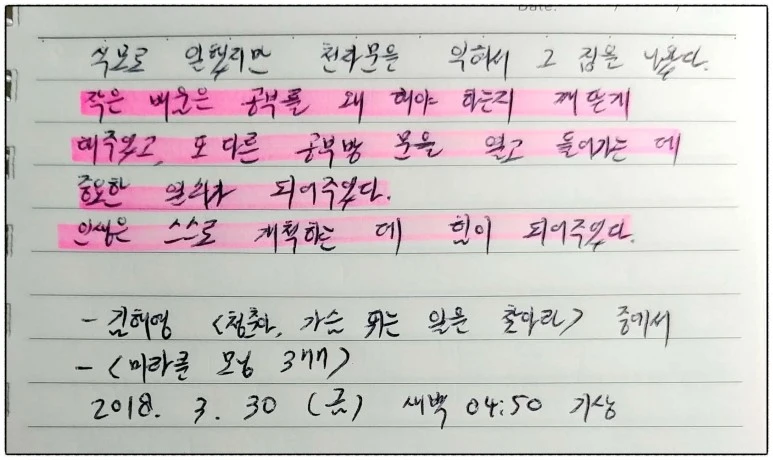 Date.
식모로 일했지만 천자문을 익혀서 그 집을 나왔다.
작은 배움은 공부를 왜 해야 하는지 깨닫게
해주었고, 또 다른 공부방 문을 열고 들어가는 데
중요한 열쇠가 되어주었다.
인생은 스스로 계획하는 데 힘이 되어주었다.
- 김해영 <청춘아, 가슴 뛰는 일을 찾아라> 중에서
- <미라클 모닝 377>
2018. 3. 30 (금) 새벽 04:50 기상